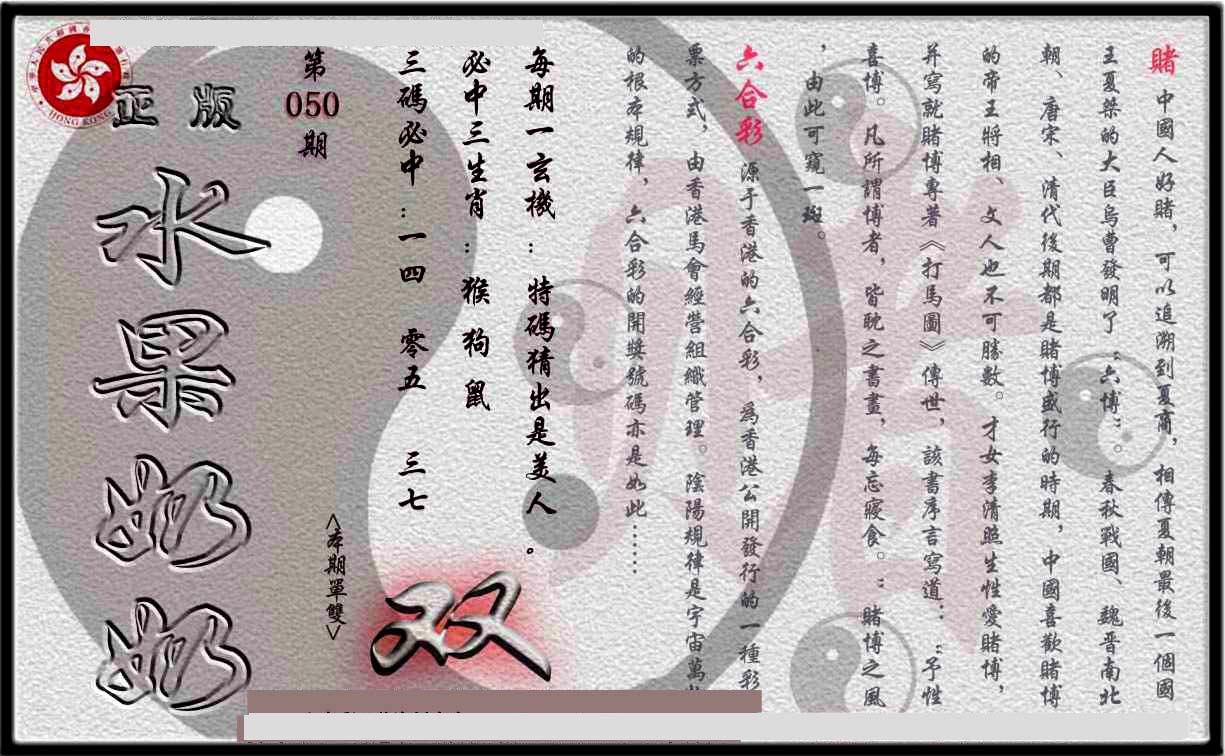 賭 中國人好賭，可以追溯到夏商，相傳夏朝最後一個國
王夏桀的大臣烏曹發明了“六博”。春秋戰國、魏晋南北
朝、唐宋、清代後期都是賭博盛行的時期，中國喜歡賭博
的帝王將相、文人也不可勝數。才女李清照生性愛賭博，
并寫就賭博專著《打馬圖》傳世，該書序言寫道：“予性
喜博。凡所謂博者，皆耽之晝畫，每忘寢食。”賭博之風
，由此可窺一斑。
六合彩 源于香港的六合彩，為香港公開發行的一種彩
票方式，由香港馬會經營組織管理。陰陽規律是宇宙萬
的根本規律，六合彩的開獎號碼亦是如此……
每期一玄機：特碼猜出是美人。
必中三生肖：猴 狗 鼠
三碼必中：一四 零五 三七
<本期單雙>
双
第
050
期
正版
水果奶奶
HONG KONG